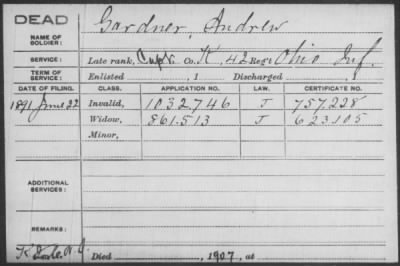 DEAD
Gardner, Andrew
NAME OF SOLDIER:
SERVICE: Late rank, Capt. Co. K, 42 Reg't Ohio Inf.
TERM OF SERVICE: Enlisted , 1 Discharged , 1
DATE OF FILING. CLASS. APPLICATION NO. LAW. CERTIFICATE NO.
1891 June 22 Invalid, 1032.746 J 757.228
Widow, 861.513 J 623105
Minor,
ADDITIONAL SERVICES:
REMARKS:
Died , 1907, at